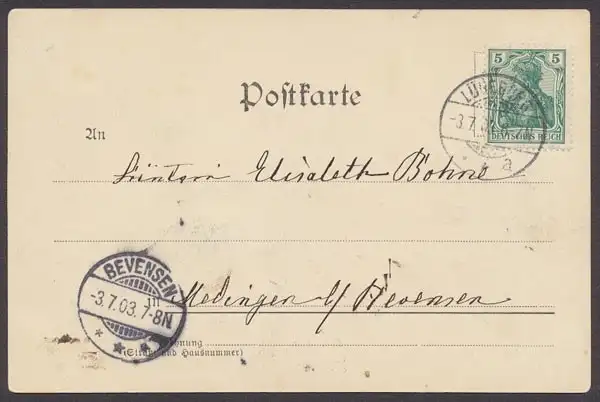 5 5
DEUTSCHES REICH
LÜNEBURG
-3.7.03.
a
Postkarte
An
Elisabeth Bohne
in Medingen b/ Bevensen
BEVENSEN
-3.7.03.7-8N
* * *
Wohnung
(Straße und Hausnummer)